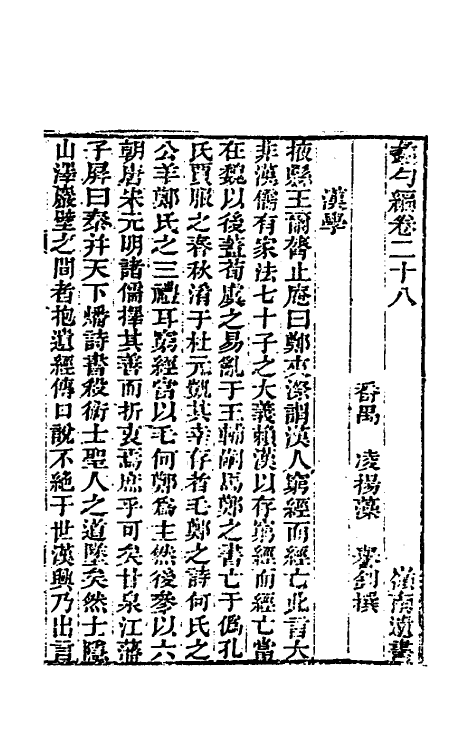 蠡勺編卷二十八　　嶺南遺書
番禺　凌揚藻　譽釗撰
漢學
掖縣王爾膂止庵曰鄭夾漈謂漢人窮經而經亡此言大
非漢儒有家法七十子之大義賴漢以存窮經而經亡當
在魏以後蓋荀虞之易亂于王輔嗣馬鄭之書亡于僞孔
氏賈服之春秋淆于杜元凱其幸存者毛鄭之詩何氏之
公羊鄭氏之三禮耳窮經當以毛何鄭爲主然後參以六
朝唐宋元明諸儒擇其善而折衷焉庶乎可矣甘泉江藩
子屏曰秦并天下燔詩書殺術士聖人之道墜矣然士隱
山澤巖壁之間者抱遺經傳口說不絕于世漢興乃出言